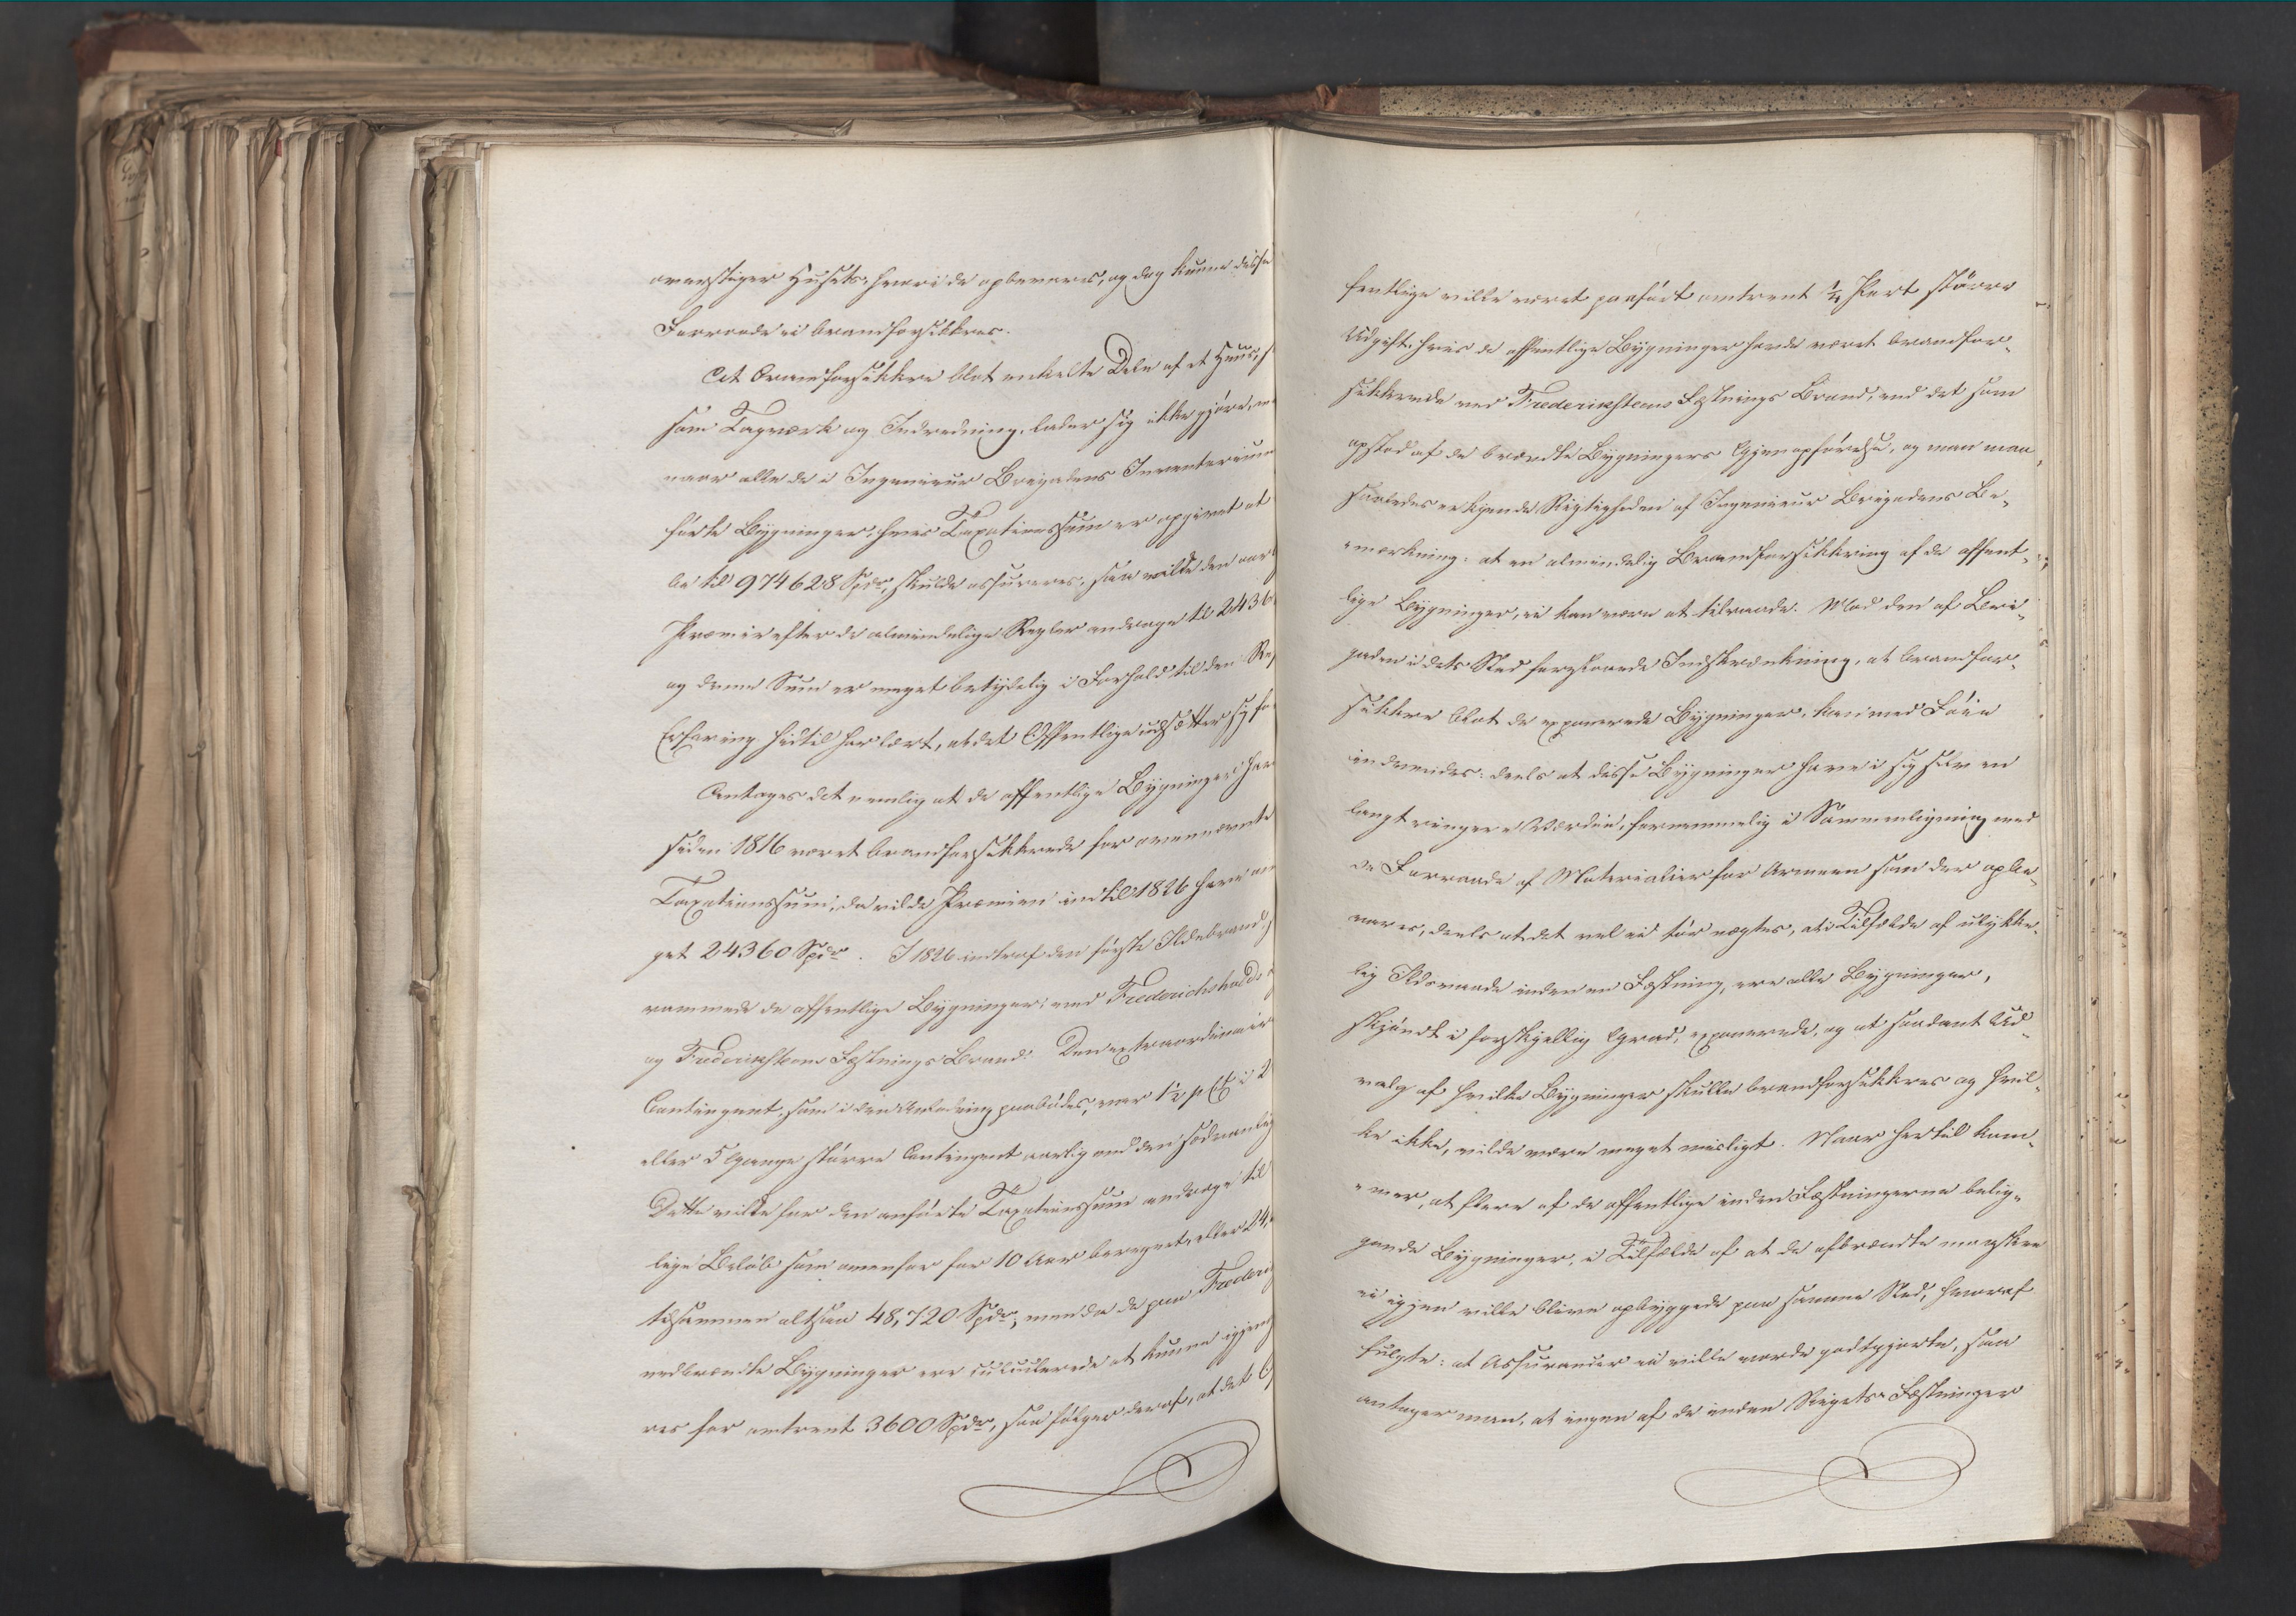 overstiger Husets, hvori de opbevares, og dog kunne disse
Forraade ei brandforsikkres.
At brandforsikkre blot enkelte Dele af et Huus, s
som Tagværk og Indredning, lader sig ikke gjøre, me
naar alle de i Ingenieur Brigadens Inventarium
førte Bygninger, hvis Taxationssum er opgivet at
be til 974628 Spdr, skulde assureres, saa vilde den aar
Præmie efter de almindelige Regler andrage til 2436
og denne Sum er meget betydelig i Forhold til den Ri
Erfaring hidtil har lært, at det Offentlige udsætter sig fo
Antages det nemlig at de offentlige Bygninger har
siden 1816 været brandforsikkrede for ovennævnte
Taxationssum, da vilde Præmien indtil 1826 have an
get 24360 Spdr. I 1826 indtraf den første Ildebrand, s
rammede de offentlige Bygninger, ved Frederichshalds
og Frederikssteens Fæstnings Brand. Den extraordinair
Contingent, som i den Anledning paabødes, var 1½ p Ct i 2
eller 5 Gange større Contingent aarlig end den sædvanlig
Dette vilde for den anførte Taxationssum andrage til
lige Beløb som ovenfor for 10 Aar beregnet, eller 24,
tilsammen altsaa 48,720 Spdr; men da de paa Frederi
nedbrændte Bygninger ere calculerede at kunne igjeno
res for omtrent 3600 Spdr, saa følger deraf, at det O
fentlige ville været paaført omtrent ¼ Part større
Udgift, hvis de offentlige Bygninger havde været brandfor-
sikkrede ved Frederikssteens Fæstnings Brand, end det som
opstod af de brændte Bygningers Gjenopførelse, og man maa
saaledes erkjende Rigtigheden af Ingenieur Brigadens Be-
mærkning: at en almindelig Brandforsikkring af de offent-
lige Bygninger, ei kan være at tilraade. Mod den af Bri-
gaden i dets Sted foreslaaede Indskrænkning, at brandfor-
sikkre blot de exponerede Bygninger, kan med Føie
indvendes: deels at disse Bygninger have i sig selv en
langt ringere Værdie, fornemmelig i Sammenligning med
de Forraade af Materialier for Armeen som der opbe-
vares, deels at det vel ei tør nægtes, at i Tilfælde af ulykke-
lig Ildsvaade inden en Fæstning, ere alle Bygninger,
skjøndt i forskjellig Grad, exponerede, og at saadant Ud-
valg af hvilke Bygninger skulle brandforsikkres og hvil-
ke ikke, vilde være meget misligt. Naar hertil kom-
mer, at flere af de offentlige inden Fæstningerne belig-
gende Bygninger, i Tilfælde af at de afbrændte maaskee
ei igjen ville blive opbyggede paa samme Sted, hvoraf
fulgte: at Assurancer ei ville vorde godtgjorte, saa
antager man, at ingen af de inden Rigets Fæstninger